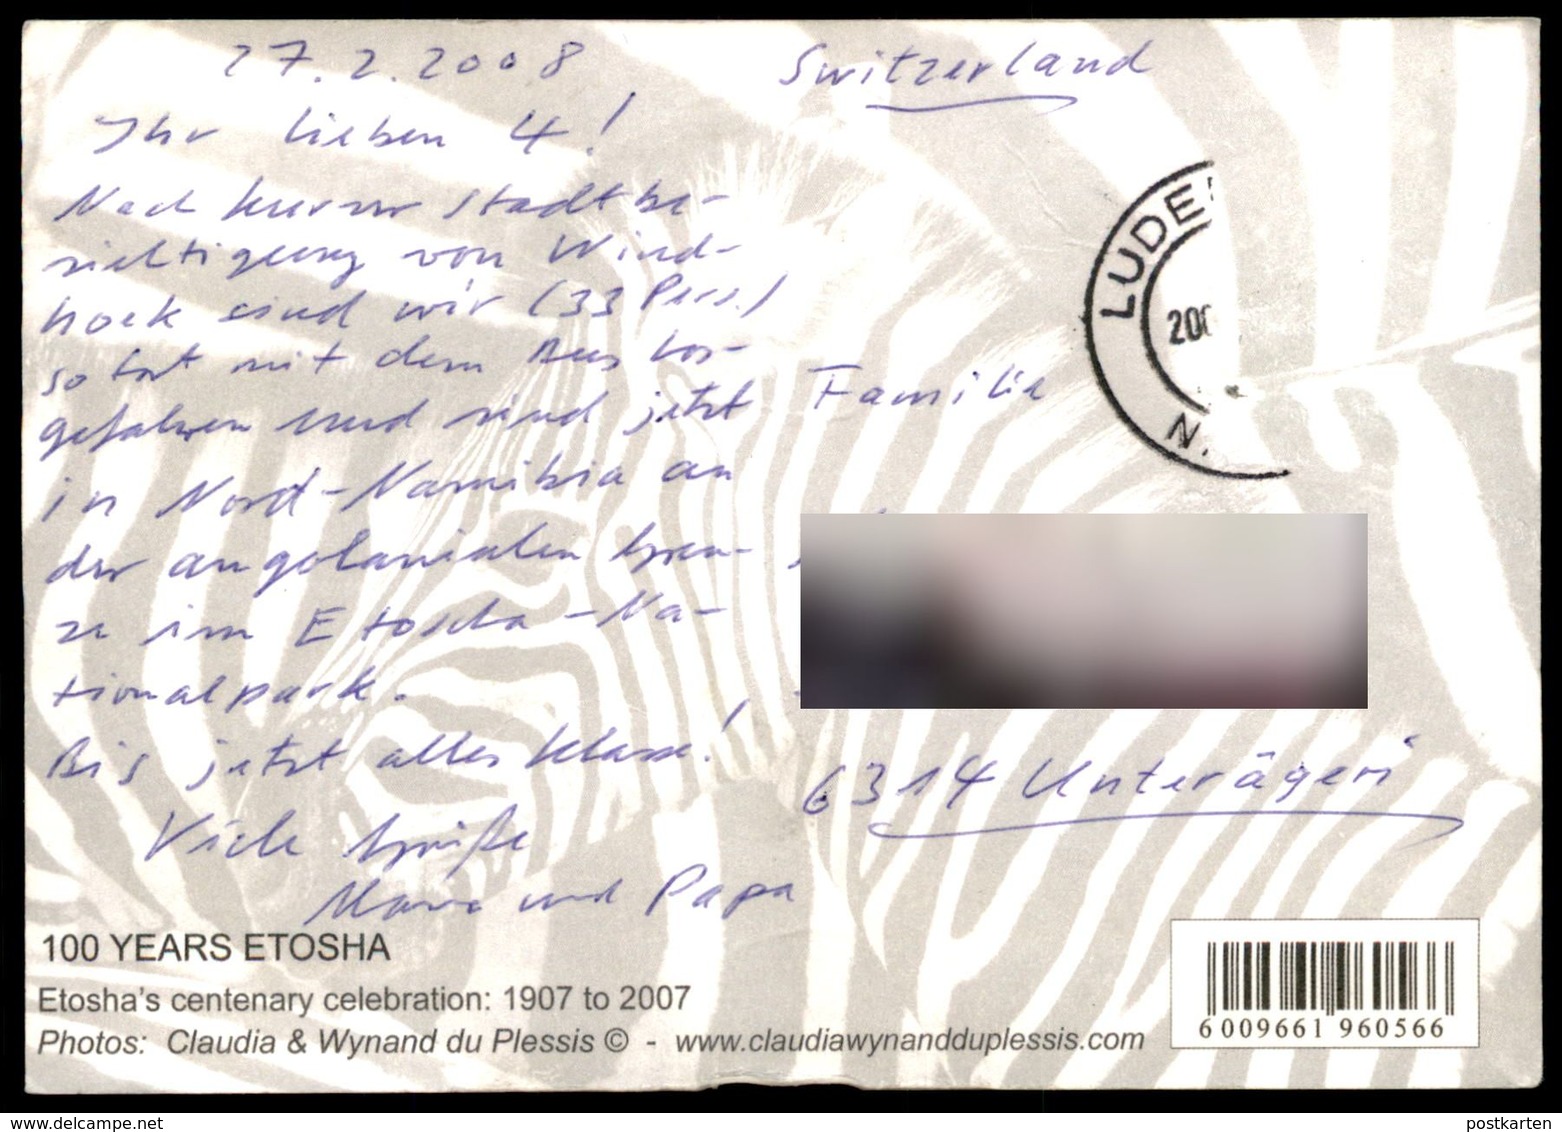 27.2.2008
Ihr lieben 4!
Nach kurzer Stadtbe-
sichtigung von Wind-
hoek sind wir (33 Pers.)
sofort mit dem Bus los-
gefahren und sind jetzt
in Nord-Namibia an
der angolanischen Gren-
ze im Etoscha-Na-
tionalpark.
Bis jetzt alles klasse!
Viele Grüße
und Papa
Switzerland
LUDE
200
N.
Familie
6314 Unterägeri
100 YEARS ETOSHA
Etosha's centenary celebration: 1907 to 2007
Photos: Claudia & Wynand du Plessis © - www.claudiawynandduplessis.com
6 009661 960566
www.delcampe.net
postkarten